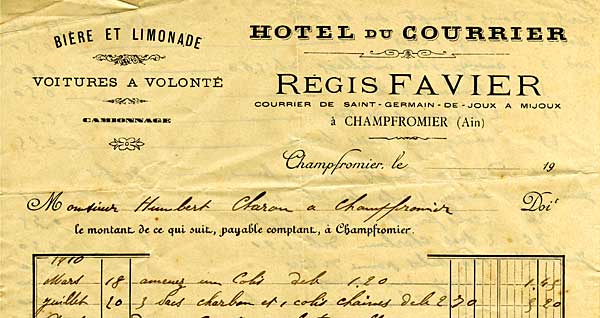 BIÈRE ET LIMONADE
VOITURES A VOLONTÉ
CAMIONNAGE
HOTEL DU COURRIER
RÉGIS FAVIER
COURRIER DE SAINT-GERMAIN-DE-JOUX A MIJOUX
à CHAMPFROMIER (Ain)
Champfromier, le 19
Monsieur Humbert a Champfromier Doit
le montant de ce qui suit, payable comptant, à Champfromier.
1910
Mars 18 amenez un Colis deb 1.20 1.45
juillet 20 3 sacs charbon et 1 colis chaines deb 2 70 5 20